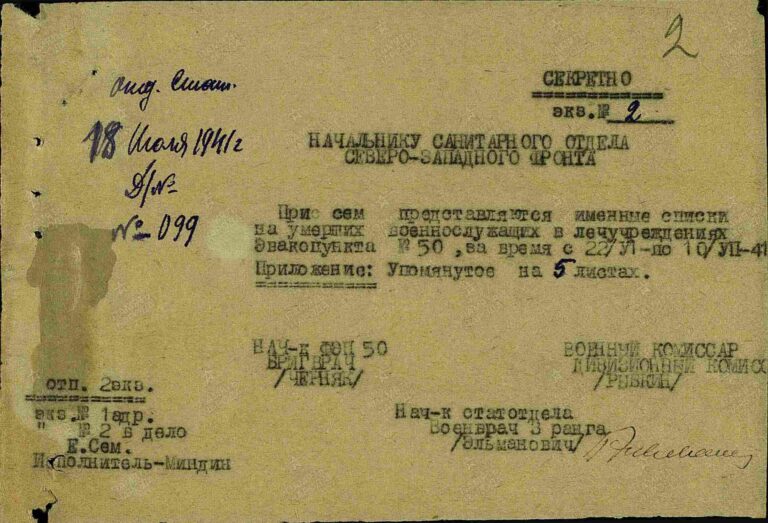 2
Отд. Стат.
СЕКРЕТНО
экз.№ 2
18 Июля 1941г
Д/№
№-099
НАЧАЛЬНИКУ САНИТАРНОГО ОТДЕЛА
СЕВЕРО-ЗАПАДНОГО ФРОНТА
При сем представляются именные списки
на умерших военнослужащих в лечучреждениях
Эвакопункта № 50, за время с 22/У1-по 10/УП-41
Приложение: Упомянутое на 5 листах.
НАЧ-К ФЭП 50
БРИГВРАЧ
/ЧЕРНЯК/
ВОЕННЫЙ КОМИССАР
ДИВИЗИОННЫЙ КОМИСС
/РЫБКИН/
отп. 2экз.
экз.№ 1адр.
" №2 в дело
Е.Сем.
Исполнитель-Миндин
Нач-к статотдела
Военврач 3 ранга
/Эльманович/